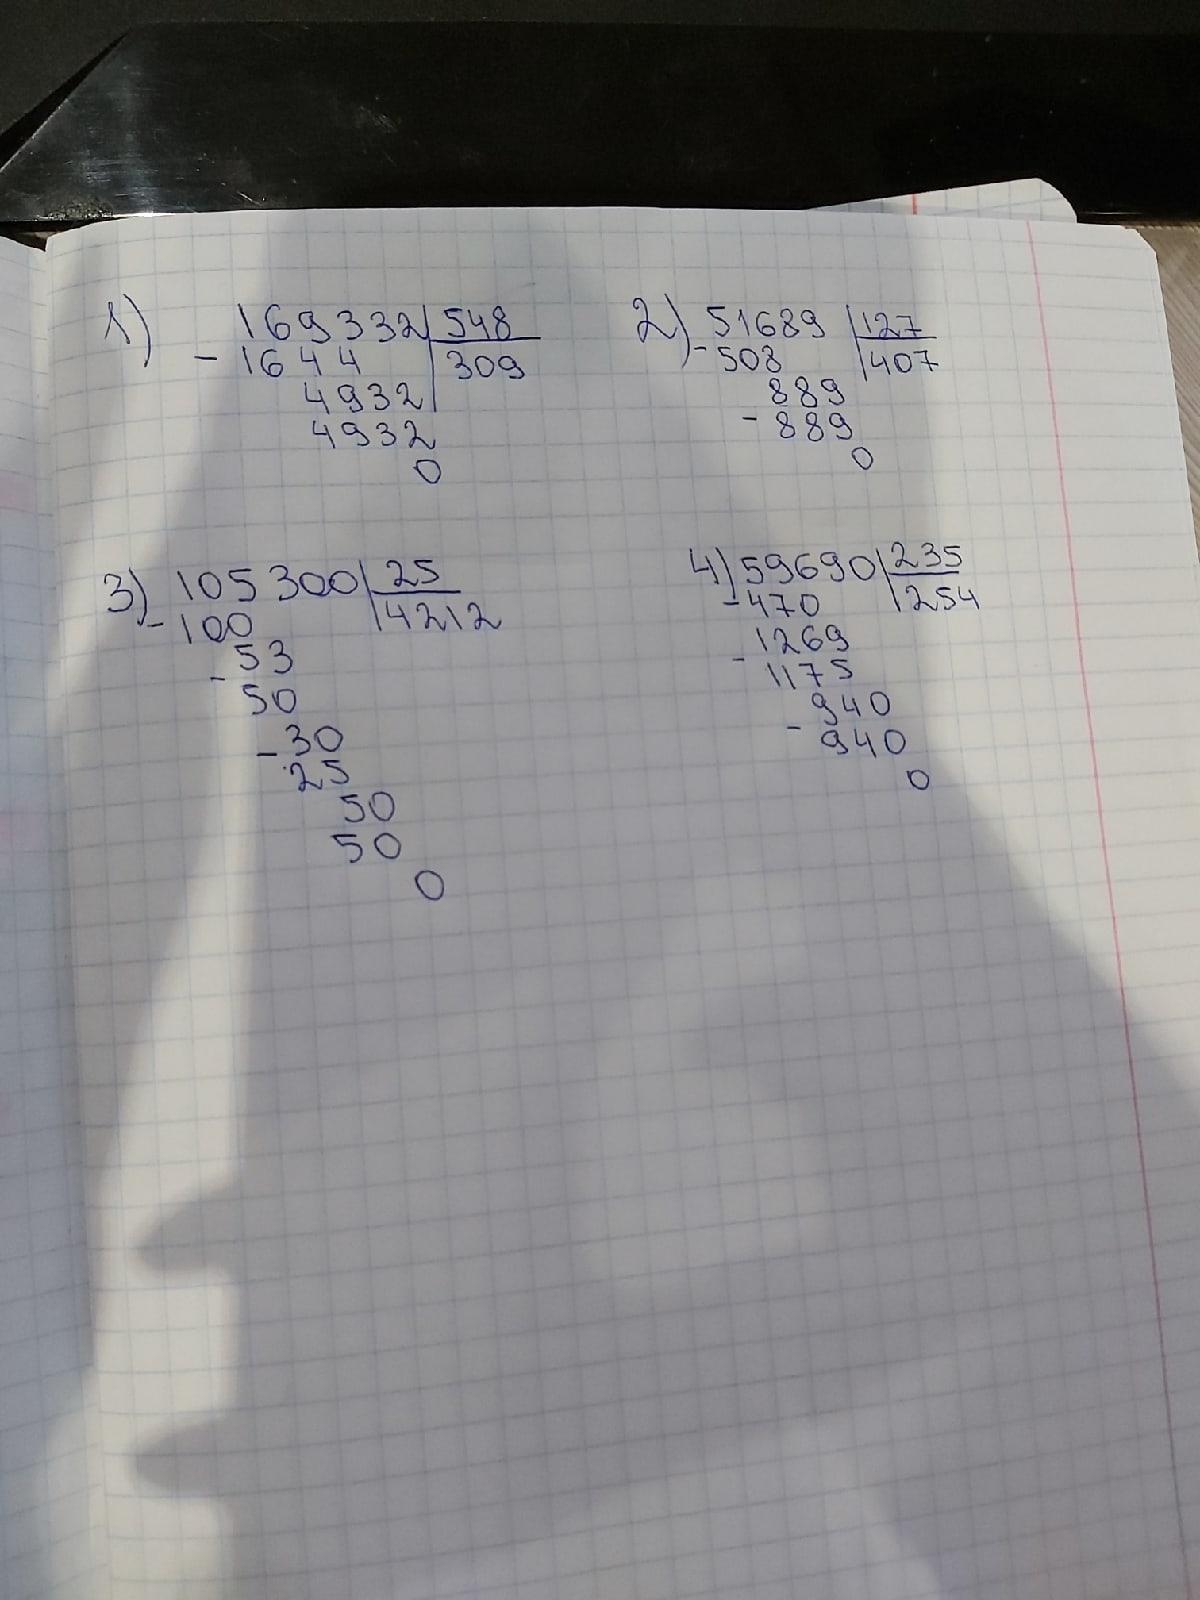 1) 169332 548
- 1644 309
4932
4932
0
2) 51689 127
- 508 407
889
- 889
0
3) 105300 25
- 100 4212
- 53
50
- 30
25
50
50
0
4) 59690 235
- 470 254
- 1269
1175
- 940
940
0